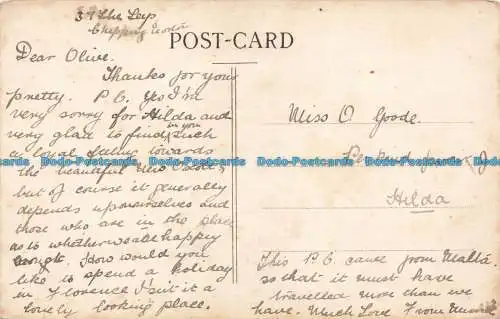 39 The Leys
Chipping Norton
POST-CARD
Dear Olive.
Thanks for your
pretty. P.C. Yes I'm
very sorry for Hilda and
very glad to find in you such
a loyal towards
the beautiful
but of course it generally
depends upon ourselves and
those who are in the place
as to whether we are happy
or not. How would you
like to spend a holiday
in Florence isn't it a
lovely looking place.
Miss O. Goode.
Hilda
This P.C. came from Malta.
so that it must have
travelled more than we
have. Much Love From